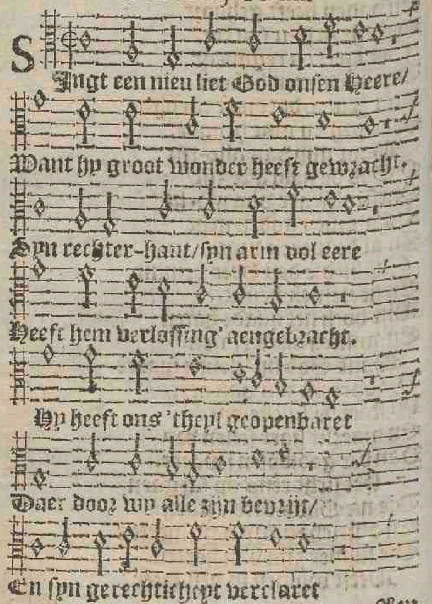 SIngt een nieu liet God onsen Heere/
Want hy groot wonder heeft gewzacht.
Syn rechter-hant/syn arm vol eere
Heeft hem verlossing' aengebzacht.
Hy heeft ons 'theyl geopenbaret
Daer dooz wy alle zijn bevzijt/
En syn gerechticheyt verclaret